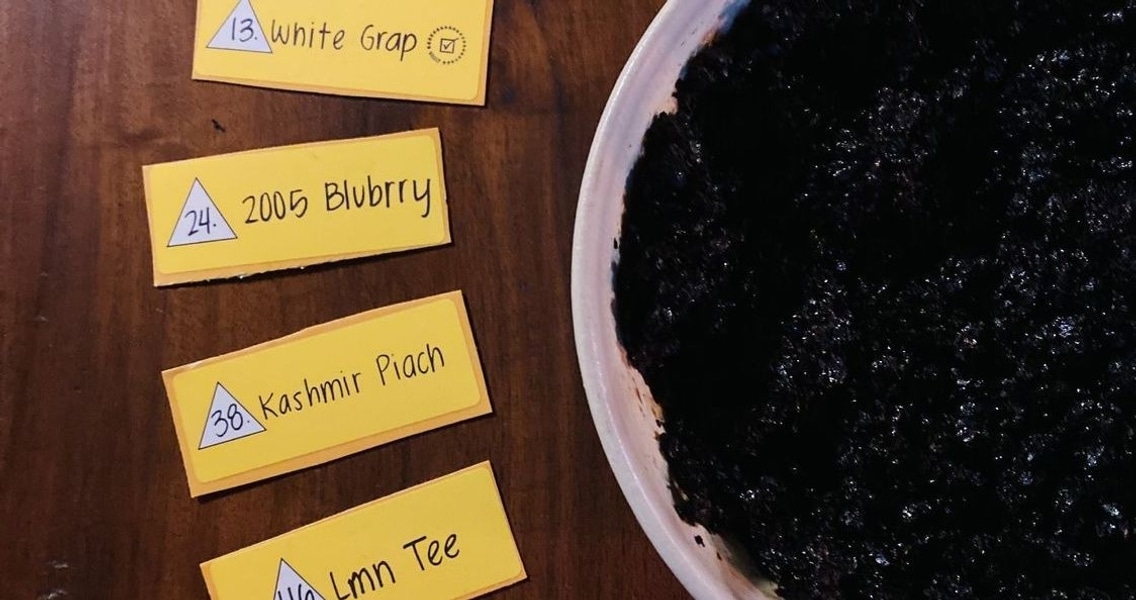 13. White Grap
24. 2005 Blubrry
38. Kashmir Piach
46. Lmn Tee